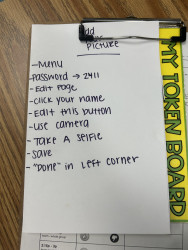 Add
Picture
- Menu
- Password → 2411
- Edit Page
- Click your name
- Edit this button
- Use camera
- Take A Selfie
- Save
- "Done" in Left Corner
MY TOKEN BOARD